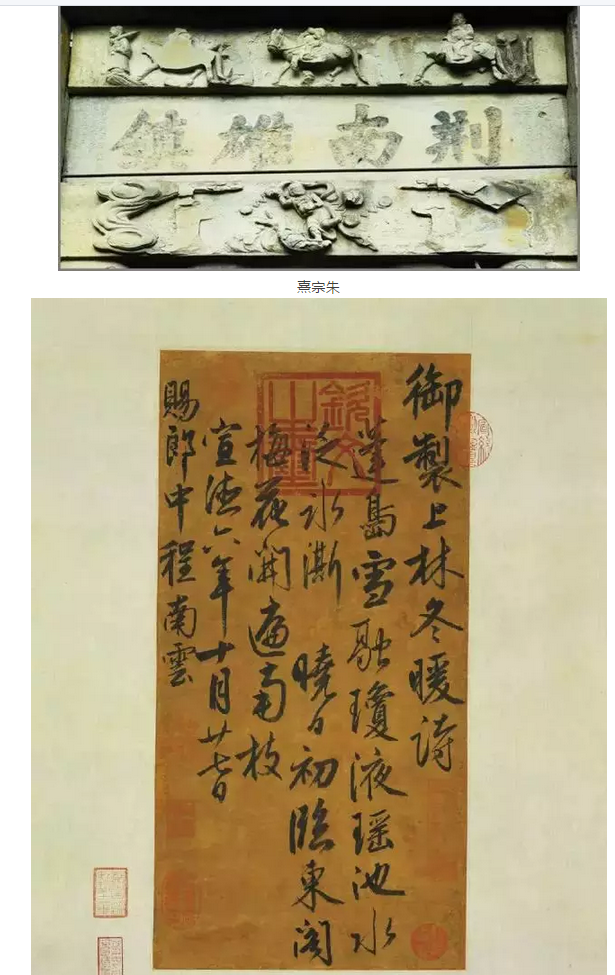 荆南雄鎮
熹宗朱
御製上林冬暖詩
蓬島雪融瓊液瑶池水
泛冰澌 曉日初臨東閣
梅花開遍南枝
宣德六年十月廿七日
賜郎中程南雲